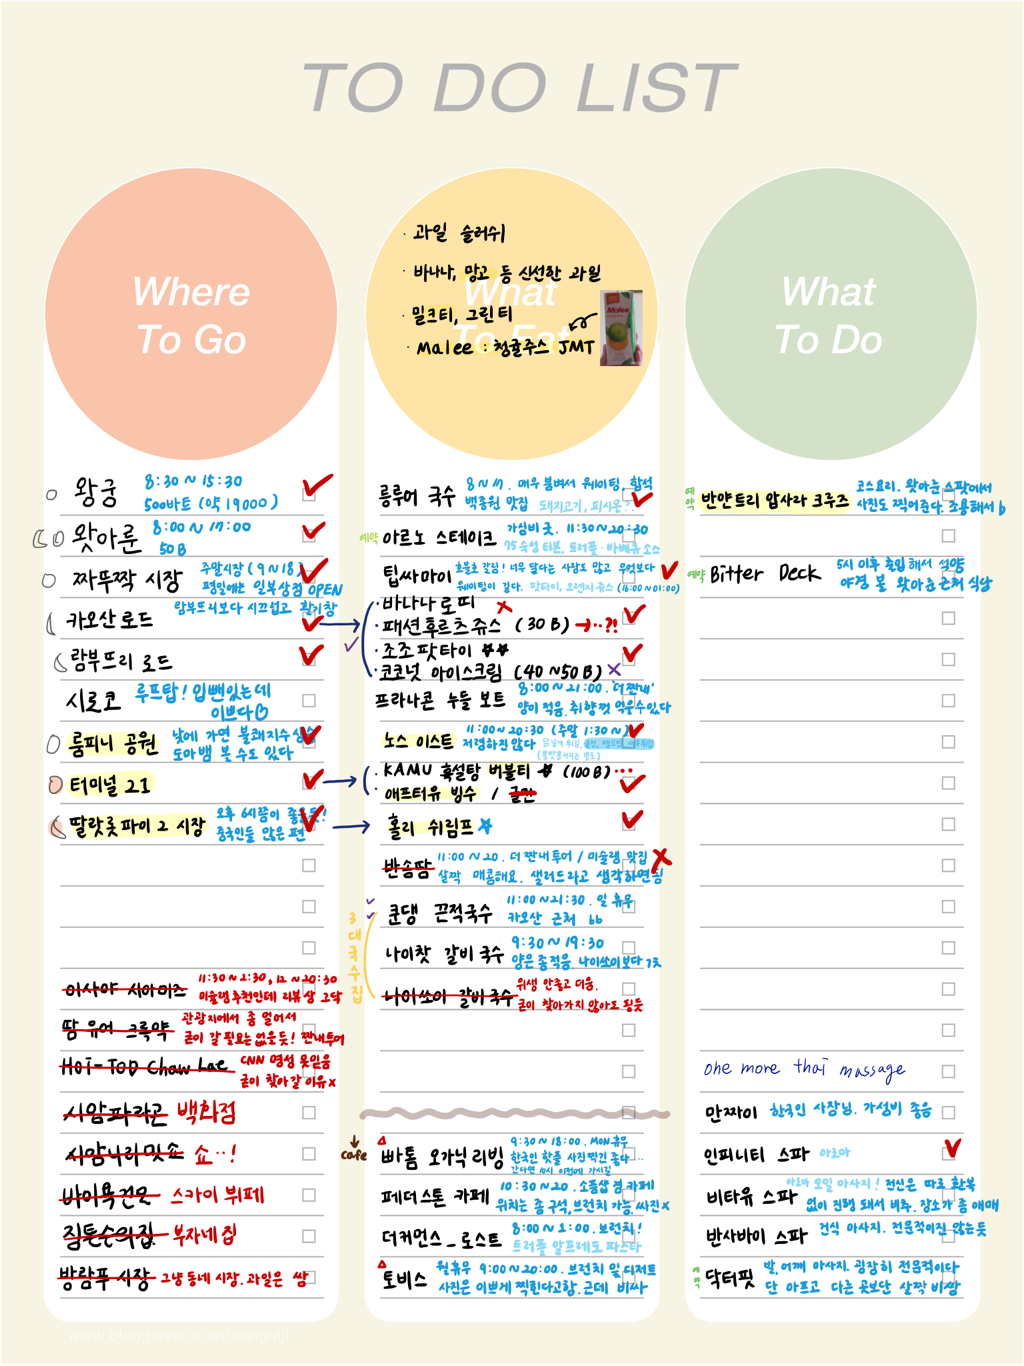 TO DO LIST
Where
To Go
왕궁 8:30 ~ 15:30
500바트 (약 19000)
왓아룬 8:00 ~ 17:00
50B
짜뚜짝 시장 주말시장 (9~18)
평일에는 일부상점 OPEN
카오산 로드 람부뜨리보다 시끄럽고 활기참
람부뜨리 로드
시로코 루프탑! 입뺀있는데
이쁘다
룸피니 공원 낮에 가면 불쾌지수 상승
도마뱀 볼 수도 있다
터미널 21
딸랏롯파이 2 시장 오후 6시쯤이 좋은듯!
중국인들 않은 편
11:30 ~ 2:30, 12 ~ 20:30
미슐랭 추천인데 리뷰상 그닥
땀 유어 크룩약 관광지에서 좀 멀어서
굳이 갈 필요는 없은듯! 짠내투어
HOI-TOD Chaw Lae CNN 명성 못믿음
굳이 찾아갈 이유x
시암파라곤 백화점
시암니라밋쇼 쇼··!
바이욕건모 스카이 뷔페
짐톰슨의집 부자네 집
방람푸 시장 그냥 동네 시장. 과일은 쌈
www.blog.naver.com/songuiii
What
To Eat
· 과일 슬러쉬
· 바나나, 망고 등 신선한 과일
· 밀크티, 그린티
· Malee : 청귤주스 JMT
Malee
릉루어 국수 8 ~ 17. 매우 붐벼서 웨이팅, 합석
백종원 맛집 돼지고기, 피시온?
예약 아르노 스테이크 가심비 굿. 11:30~20:30
75 숙성 티본, 트러플·바베큐 소스
팁싸마이 호불호 갈림! 너무 달다는 사람도 많고 무엇보다
웨이팅이 길다. 팟타이, 오렌지 쥬스 (16:00~01:00)
· 바나나 로띠
· 패션후르츠 쥬스 (30B) →··?!
· 조조 팟타이
· 코코넛 아이스크림 (40~50B)
프라나콘 누들 보트 8:00~21:00. '더 짠내'
양이 적음. 취향껏 먹을수있다
노스 이스트 11:00~20:30 (주말 1:30~)
저렴하진 않다
· KAMU 흑설탕 버블티 (100B) ···
· 애프터유 빙수 /
홀리 쉬림프
반쏨땀 11:00~20. 더 짠내투어 / 미슐랭 맛집
살짝 매콤해요. 샐러드라고 생각하면 됨
3대국수집
쿤댕 끈적국수 11:00~21:30. 일 휴무
카오산 근처 bb
나이찻 갈비 국수 9:30~19:30
양은 좀 적음. 나이쏘이보다
나이쏘이 갈비 국수 위생 안좋고 더움.
굳이 찾아가지 않아도 될듯
cafe
빠톰 오가닉 리빙 9:30~18:00. MON 휴무
한국인 핫플 사진찍긴 좋다··
간다면 10시 이전에 가시길
페더스톤 카페 10:30~20. 소품샵 겸 카페
위치는 좀 구석, 브런치 가능. 싸진x
더커먼스_로스트 8:00~1:00. 브런치!
트러플 알프레도 파스타
토비스 월휴무 9:00~20:00. 브런치 및 디저트
사진은 이쁘게 찍힌다고함. 근데 비싸
What
To Do
예약 반얀트리 압사라 크루즈 코스요리. 왓아룬 스팟에서
사진도 찍어준다. 조용해서 b
예약 Bitter Deck 5시 이후 출입해서 석양
야경 볼 왓아룬 근처 식당
one more thai massage
만짜이 한국인 사장님. 가성비 좋음
인피니티 스파 아로마
비타유 스파 아로마 오일 마사지! 전신은 따로 환복
없이 진행 돼서 비추. 장소가 좀 애매
반사바이 스파 건식 마사지. 전문적이진 않는듯
예약 닥터핏 발, 어깨 마사지. 굉장히 전문적이다
단 아프고 다른 곳보단 살짝 비쌈